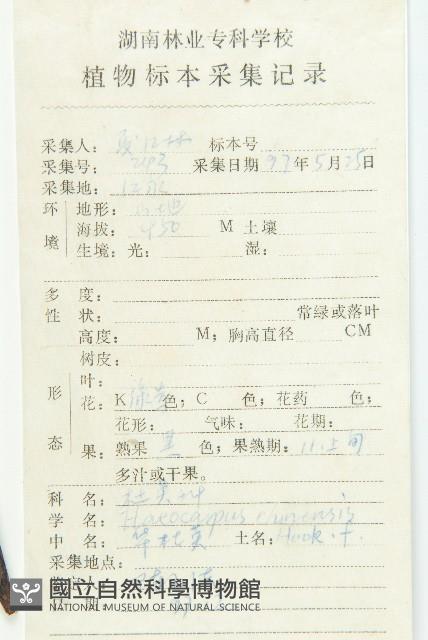 湖南林业专科学校
植物标本采集记录
采集人： 标本号
采集号： 采集日期 97年5月25日
采集地： 江永
环境 地形： 山地
海拔： 450 M 土壤
生境：光： 湿：
多度：
性状： 常绿或落叶
高度： M；胸高直径 CM
形态 树皮：
叶：
花：K 色；C 色；花药 色；
花形： 气味： 花期：
果：熟果 黑 色；果熟期：11.上旬
多汁或干果。
科名： 杜英科
学名： Elaeocarpus chinensis
中名： 华杜英 土名： Hook. f.
采集地点：
國立自然科學博物館
NATIONAL MUSEUM OF NATURAL SCIENCE